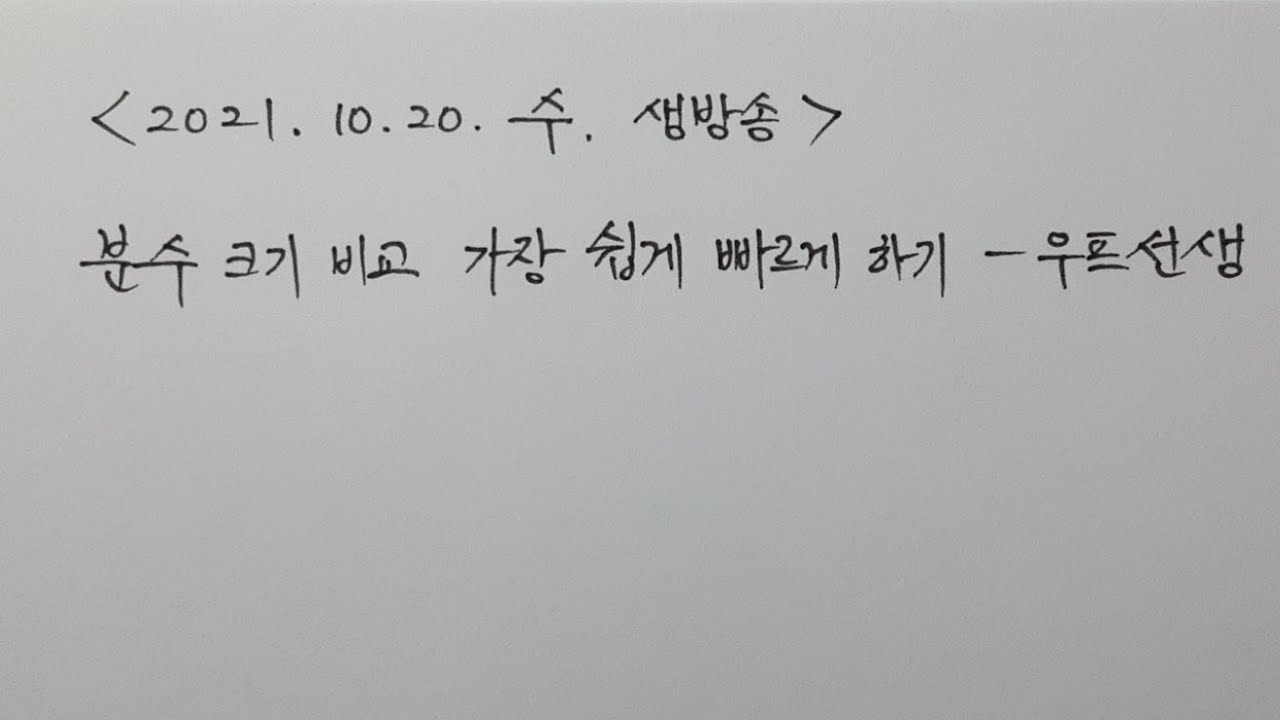 <2021. 10. 20. 수. 생방송>
분수 크기 비교 가장 쉽게 빠르게 하기 - 우프선생